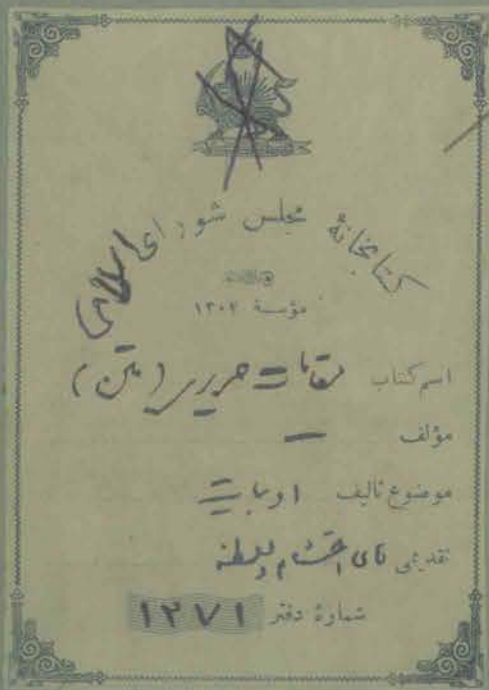 کتابخانهٔ مجلس شورای اسلامی
مؤسسهٔ ۱۳۰۲
اسم کتاب مقامات حریری (متن)
مؤلف —
موضوع تألیف ادبیات
تقدیمی آقای احتشام السلطنه
شمارهٔ دفتر ۱۲۷۱